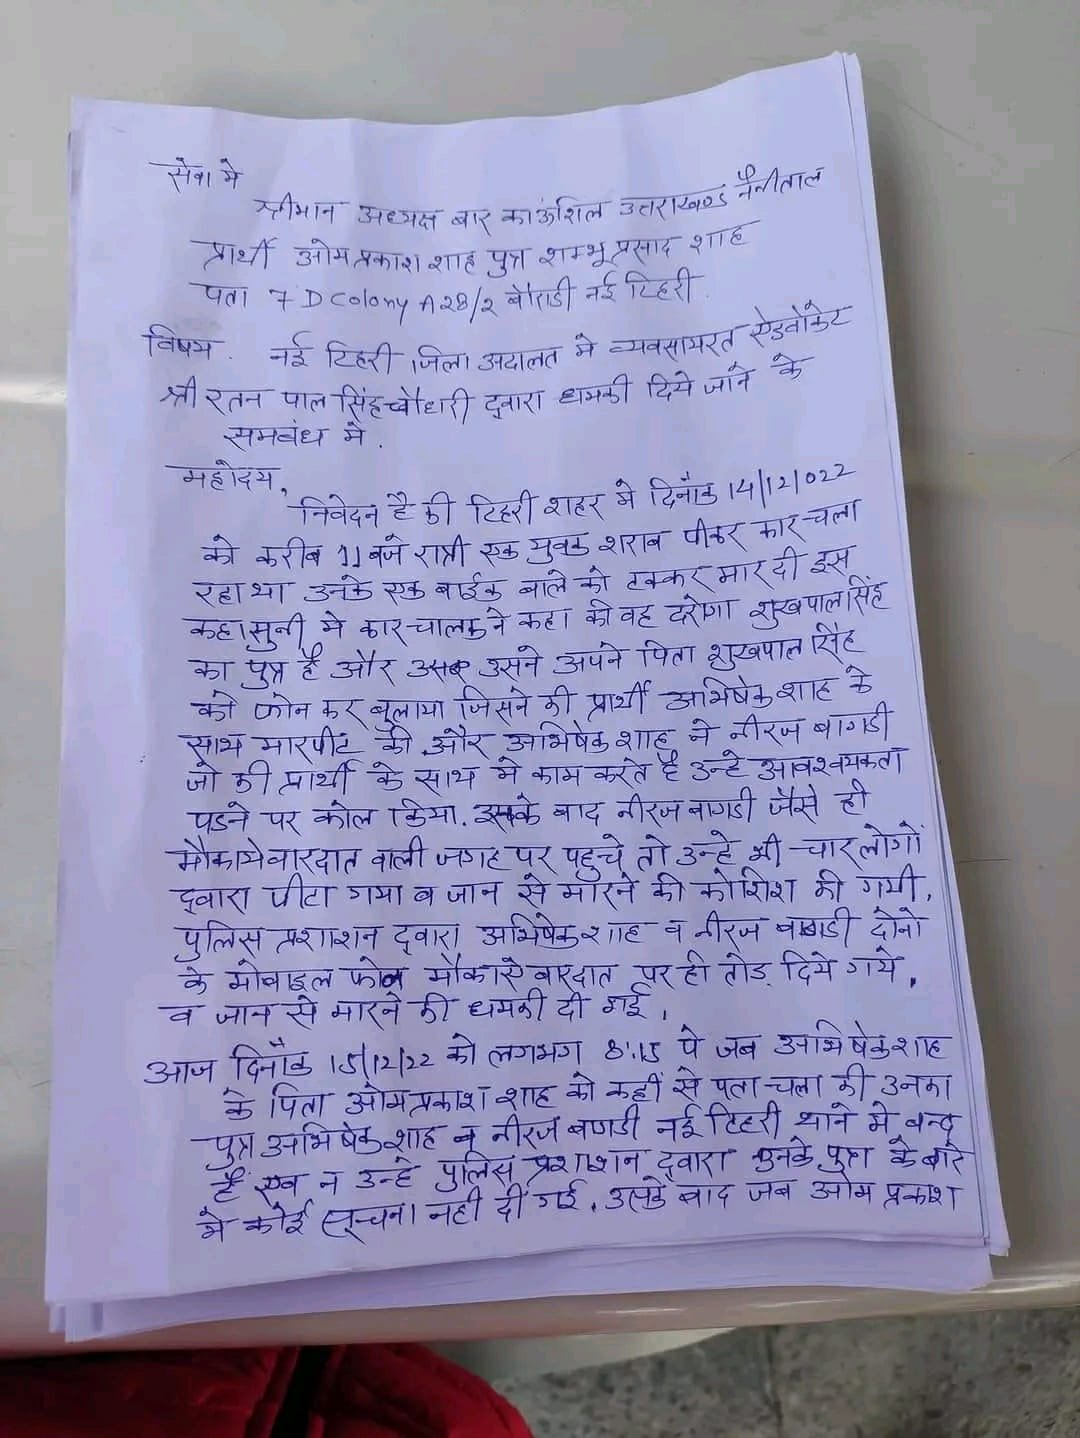 सेवा मे
श्रीमान अध्यक्ष बार काऊंशिल उत्तराखण्ड नैनीताल
प्रार्थी ओमप्रकाश शाह पुत्र शम्भू प्रसाद शाह
पता 7 D Colony A 28/2 बौराडी नई टिहरी.
विषय. नई टिहरी जिला अदालत मे व्यवसायरत ऐडवोकेट
श्री रतन पाल सिंह चौधरी द्वारा धमकी दिये जाने के
समबंध मे.
महोदय,
निवेदन है की टिहरी शहर मे दिनाँक 14/12/022
को करीब 11 बजे रात्री एक युवक शराब पीकर कार चला
रहा था उनके एक बाईक वाले को टक्कर मार दी इस
कहासुनी मे कार चालक ने कहा की वह दरोगा शुखपाल सिंह
का पुत्र है और उसने अपने पिता शुखपाल सिंह
को फोन कर बुलाया जिसने की प्रार्थी अभिषेक शाह के
साथ मारपीट की और अभिषेक शाह ने नीरज बागडी
जो की प्रार्थी के साथ मे काम करते है उन्हे आवश्वयकता
पडने पर कोल किया. इसके बाद नीरज बागडी जैसे ही
मौकायेवारदात वाली जगह पर पहुचे तो उन्हे भी चार लोगों
द्वारा पीटा गया व जान से मारने की कोशिश की गयी,
पुलिस प्रशाशन द्वारा अभिषेक शाह व नीरज बागडी दोनो
के मोबाइल फोन मौकाऐ वारदात पर ही तोड़ दिये गये,
व जान से मारने की धमकी दी गई,
आज दिनाँक 15/12/22 को लगभग 8:15 पे जब अभिषेक शाह
के पिता ओमप्रकाश शाह को कहीं से पता चला की उनका
पुत्र अभिषेक शाह व नीरज बागडी नई टिहरी थाने मे बन्द
हैं एव न उन्हे पुलिस प्रशाशन द्वारा उनके पुत्र के बारे
मे कोई सूचना नही दी गई, उसके बाद जब ओम प्रकाश